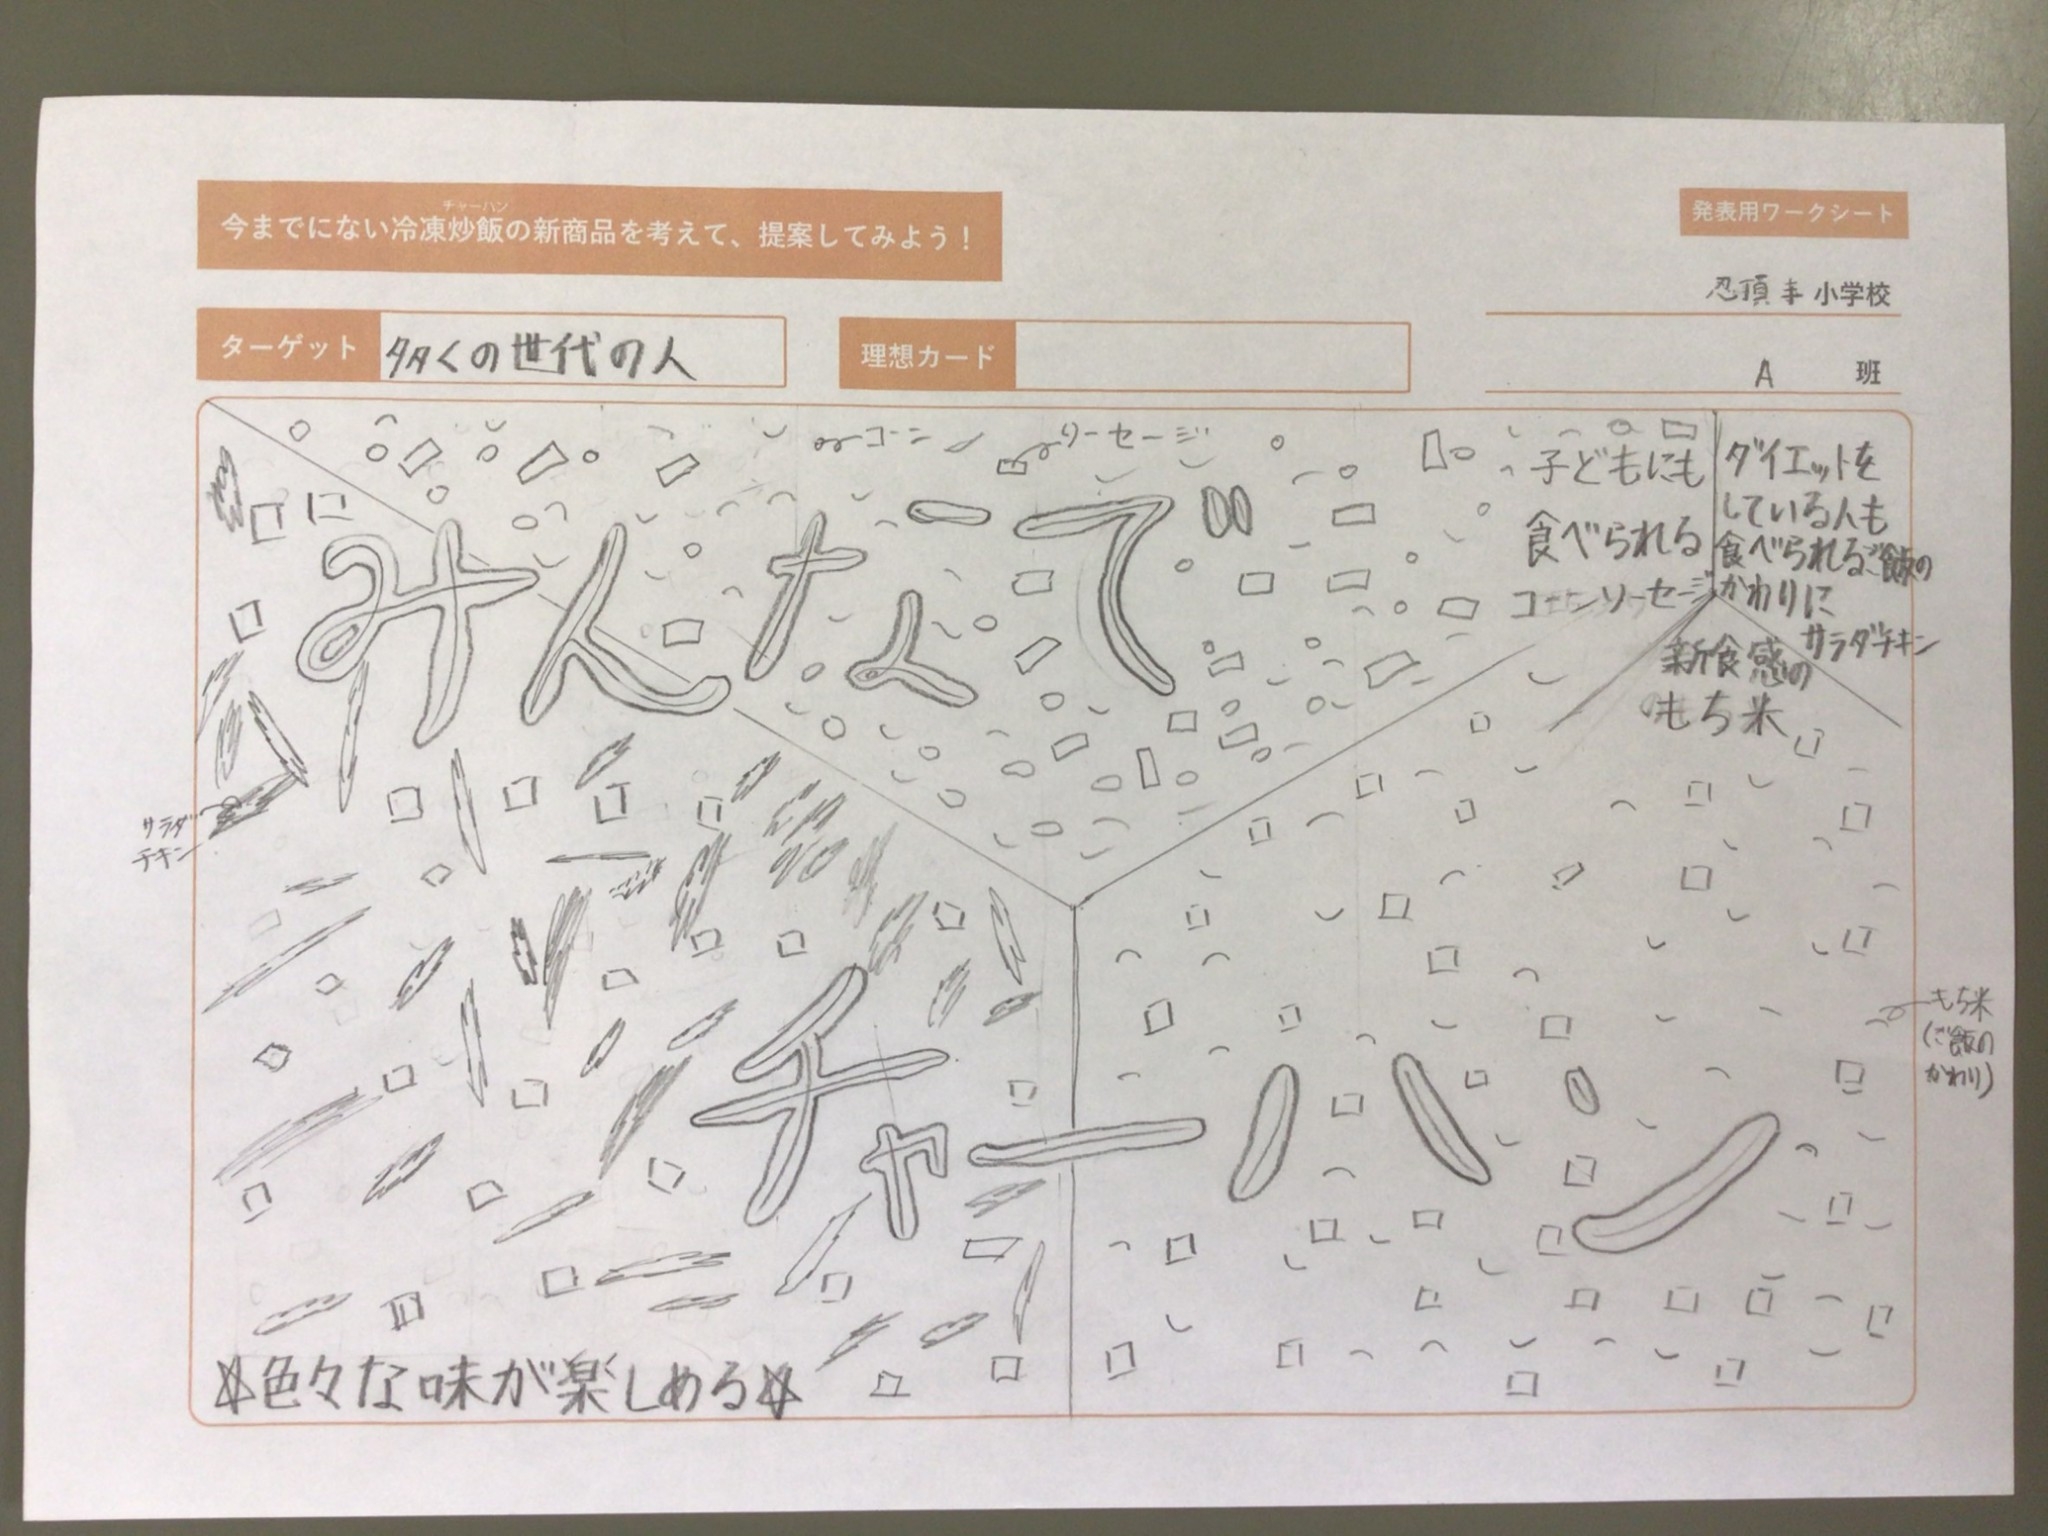 チャーハン
今までにない冷凍炒飯の新商品を考えて、提案してみよう！
発表用ワークシート
忍頂寺小学校
ターゲット 多くの世代の人
理想カード
A 班
コーン
ソーセージ
子どもにも
食べられる
コーンソーセージ
ダイエットを
している人も
食べられるご飯の
かわりに
サラダチキン
新食感の
もち米
みんなで
サラダ
チキン
チャーハン
もち米
(ご飯の
かわり)
☆色々な味が楽しめる☆